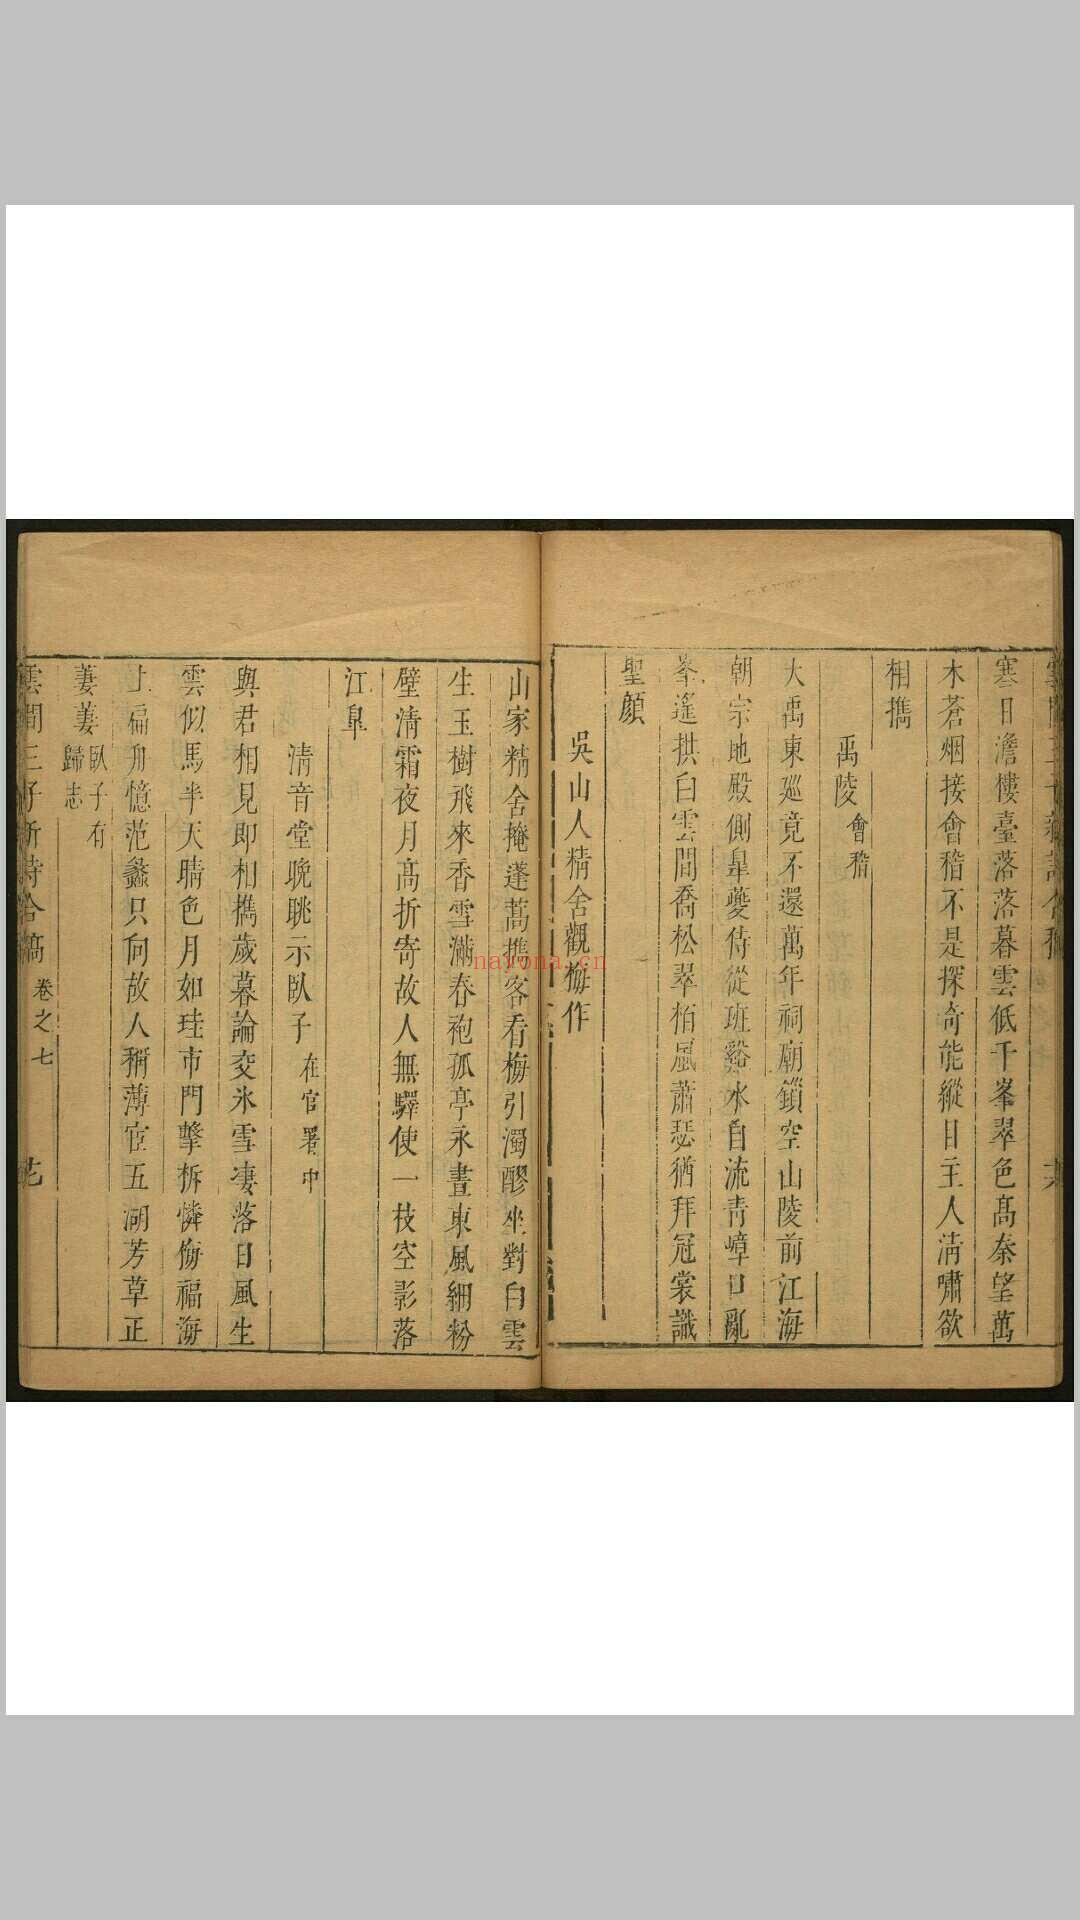 寒日澹樓臺落落暮雲低千峯翠色高秦望萬
木蒼烟接會稽不是探奇能縱目主人清嘯欲
相携
禹陵會稽
大禹東廵竟不還萬年祠廟鎖空山陵前江海
朝宗地殿側臯夔侍從班谿水自流青嶂口亂
峯遙拱白雲間喬松翠栢風蕭瑟猶拜冠裳識
聖顔
吳山人精舍觀梅作
山家精舍掩蓬蒿携客看梅引濁醪坐對白雲
生玉樹飛來香雪滿春袍孤亭永晝東風細粉
壁清霜夜月髙折寄故人無驛使一枝空影落
江臯
清音堂晚眺示臥子在官署中
與君相見即相携歲暮論交氷雪凄落日風生
雲似馬半天晴色月如珪市門擊柝憐梅福海
上扁舟憶范蠡只向故人稱薄宦五湖芳草正
萋萋臥子有歸志
雲間三子新詩合稿 卷之七
nayona.cn